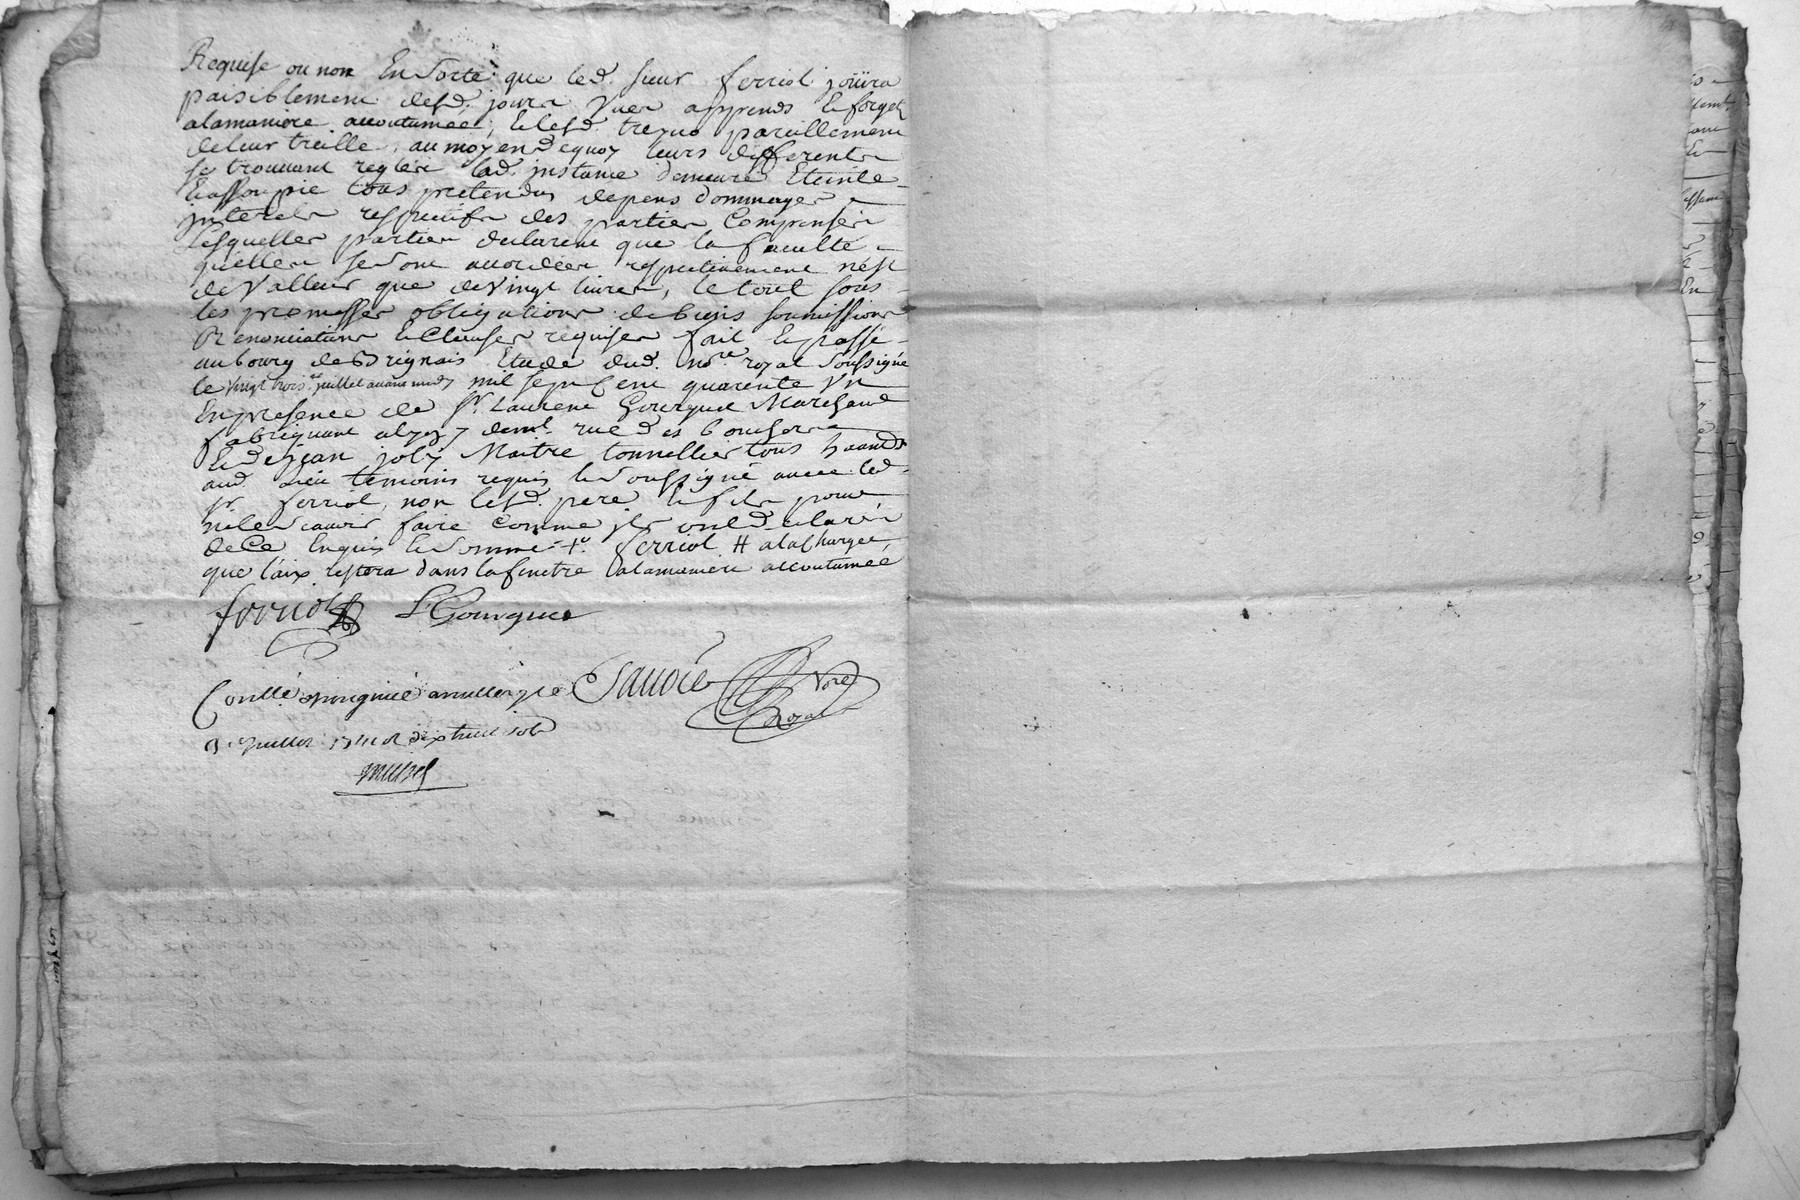 Requise ou non En Sorte que led. sieur ferriol joüira
paisiblement desd. jours Vues appends & forgets
alamaniere accoutumée, & lesd. treque pareillement
de leur treille, au moyen dequoy leurs differents
se trouvant reglés lad. instance demeure Eteinte
& assoupie tous pretendus depens dommages
interets respectifs des parties Compensés
Lesquelles parties declarent que la faculté
quelles se sont accordées respectivement n'est
de Valleur que de Vingt livres, le tout sous
les promesses obligations de biens soumissions
Renonciations & Clauses requises fait & passé
au bourg de Brignais Etude dud. no.re royal Soussigné
le Vingt trois juillet avant midy mil sept Cent quarente Un
En presence de Sr. Laurent Gourguet Marchand
fabriquant a Lyon y demt. rue des Bouchers
& de jean joly Maitre tonnellier tous
aud. lieu temoins requis & Soussigné avec led.
Sr. ferriol, non lesd. pere & fils pour
ne le Scavoir faire Comme ils ont declarés
de Ce Enquis & Sommé +. ferriol # ala Charge
que l'aix restera dans la finetre alamaniere accoutumée
ferriol L Gourguet
Conllé. a la
Savoie Nore
Royal
juillet 1741 dix huit sols